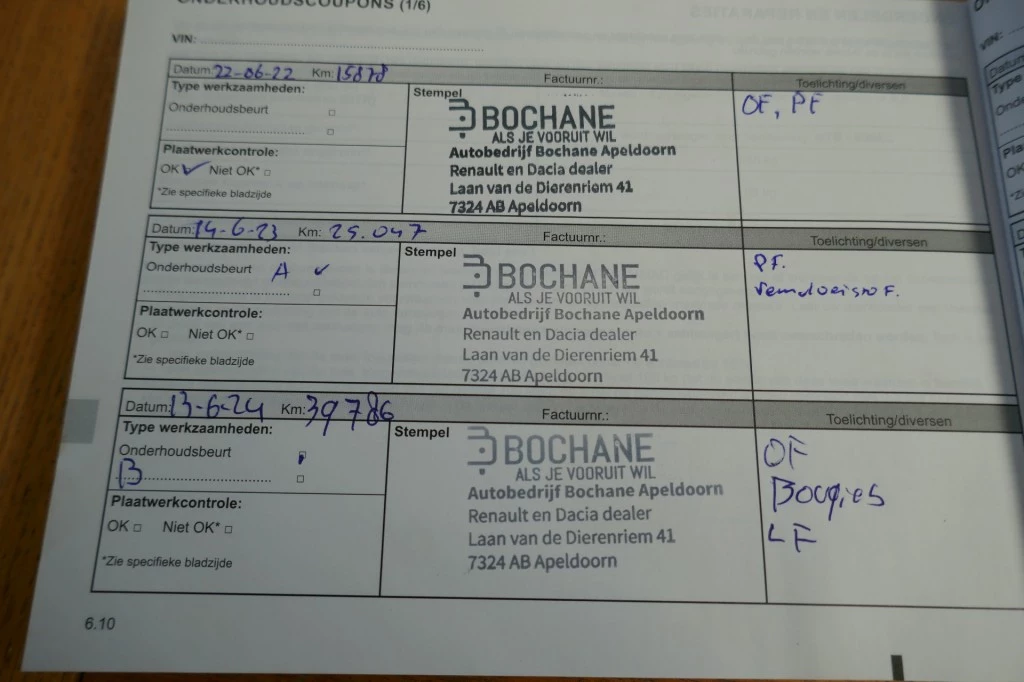 ONDERHOUDSCOUPONS (1/6)
VIN:
Datum: 22-06-22 Km: 15878 Factuurnr.: Toelichting/diversen
Type werkzaamheden:
Onderhoudsbeurt
Plaatwerkcontrole:
OK Niet OK*
*Zie specifieke bladzijde
Stempel
BOCHANE
ALS JE VOORUIT WIL
Autobedrijf Bochane Apeldoorn
Renault en Dacia dealer
Laan van de Dierenriem 41
7324 AB Apeldoorn
OF, PF
Datum: 14-6-23 Km: 29.047 Factuurnr.: Toelichting/diversen
Type werkzaamheden:
Onderhoudsbeurt A
Plaatwerkcontrole:
OK Niet OK*
*Zie specifieke bladzijde
Stempel
BOCHANE
ALS JE VOORUIT WIL
Autobedrijf Bochane Apeldoorn
Renault en Dacia dealer
Laan van de Dierenriem 41
7324 AB Apeldoorn
PF.
remvloeistof.
Datum: 13-6-24 Km: 39786 Factuurnr.: Toelichting/diversen
Type werkzaamheden:
Onderhoudsbeurt
B
Plaatwerkcontrole:
OK Niet OK*
*Zie specifieke bladzijde
Stempel
BOCHANE
ALS JE VOORUIT WIL
Autobedrijf Bochane Apeldoorn
Renault en Dacia dealer
Laan van de Dierenriem 41
7324 AB Apeldoorn
OF
Bougies
LF
6.10